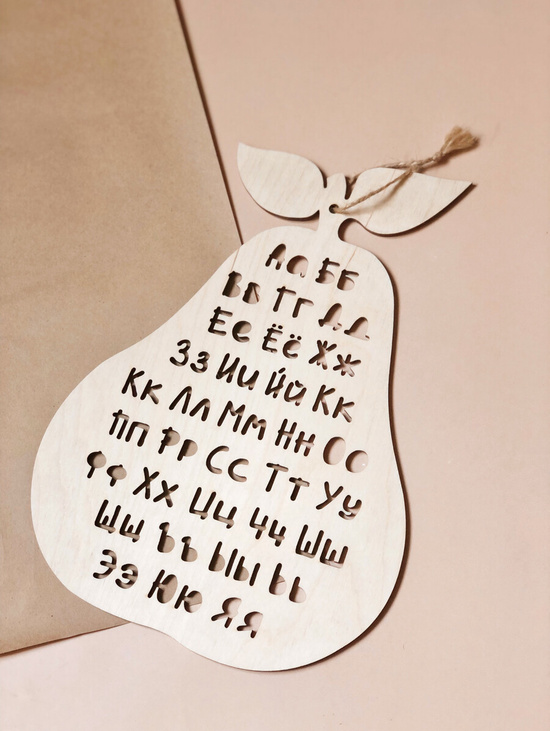 Аа Бб
Вв Гг Дд
Ее Ёё Жж
Зз Ии Йй Кк
Кк Лл Мм Нн Оо
Пп Рр Сс Тт Уу
Фф Хх Цц Чч Шш
Щщ Ъъ Ыы Ьь
Ээ Юю Яя